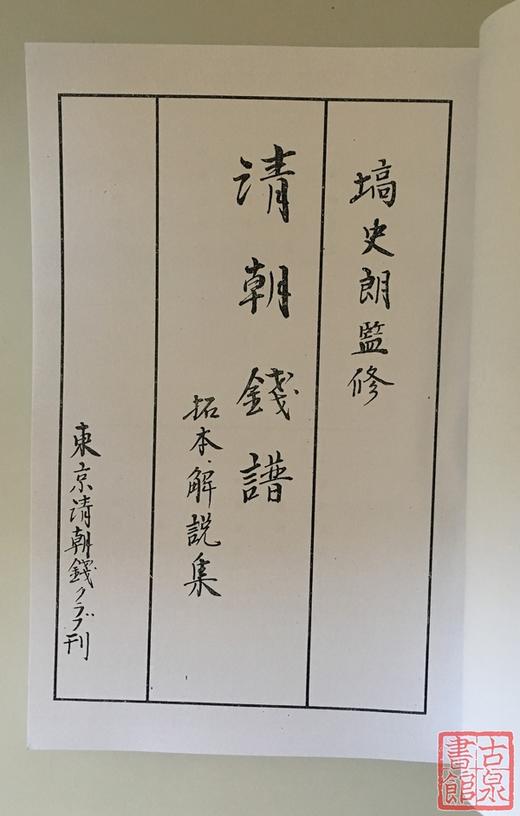 塙史朗監修
清朝銭譜
拓本・解説集
東京清朝銭クラブ刊
古泉
書館